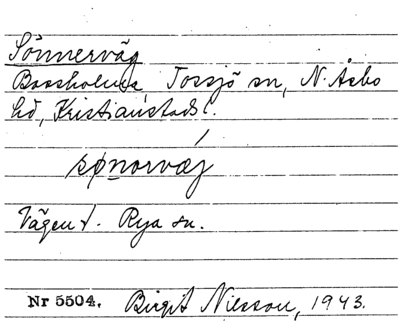 Sönnerväg
Bassholma Tossjö sn, N. Åsbo
hd, Kristianstads l.
sønorvæj
Vägen t. Rya sn.
Nr 5504. Birgit Nilsson, 1943.